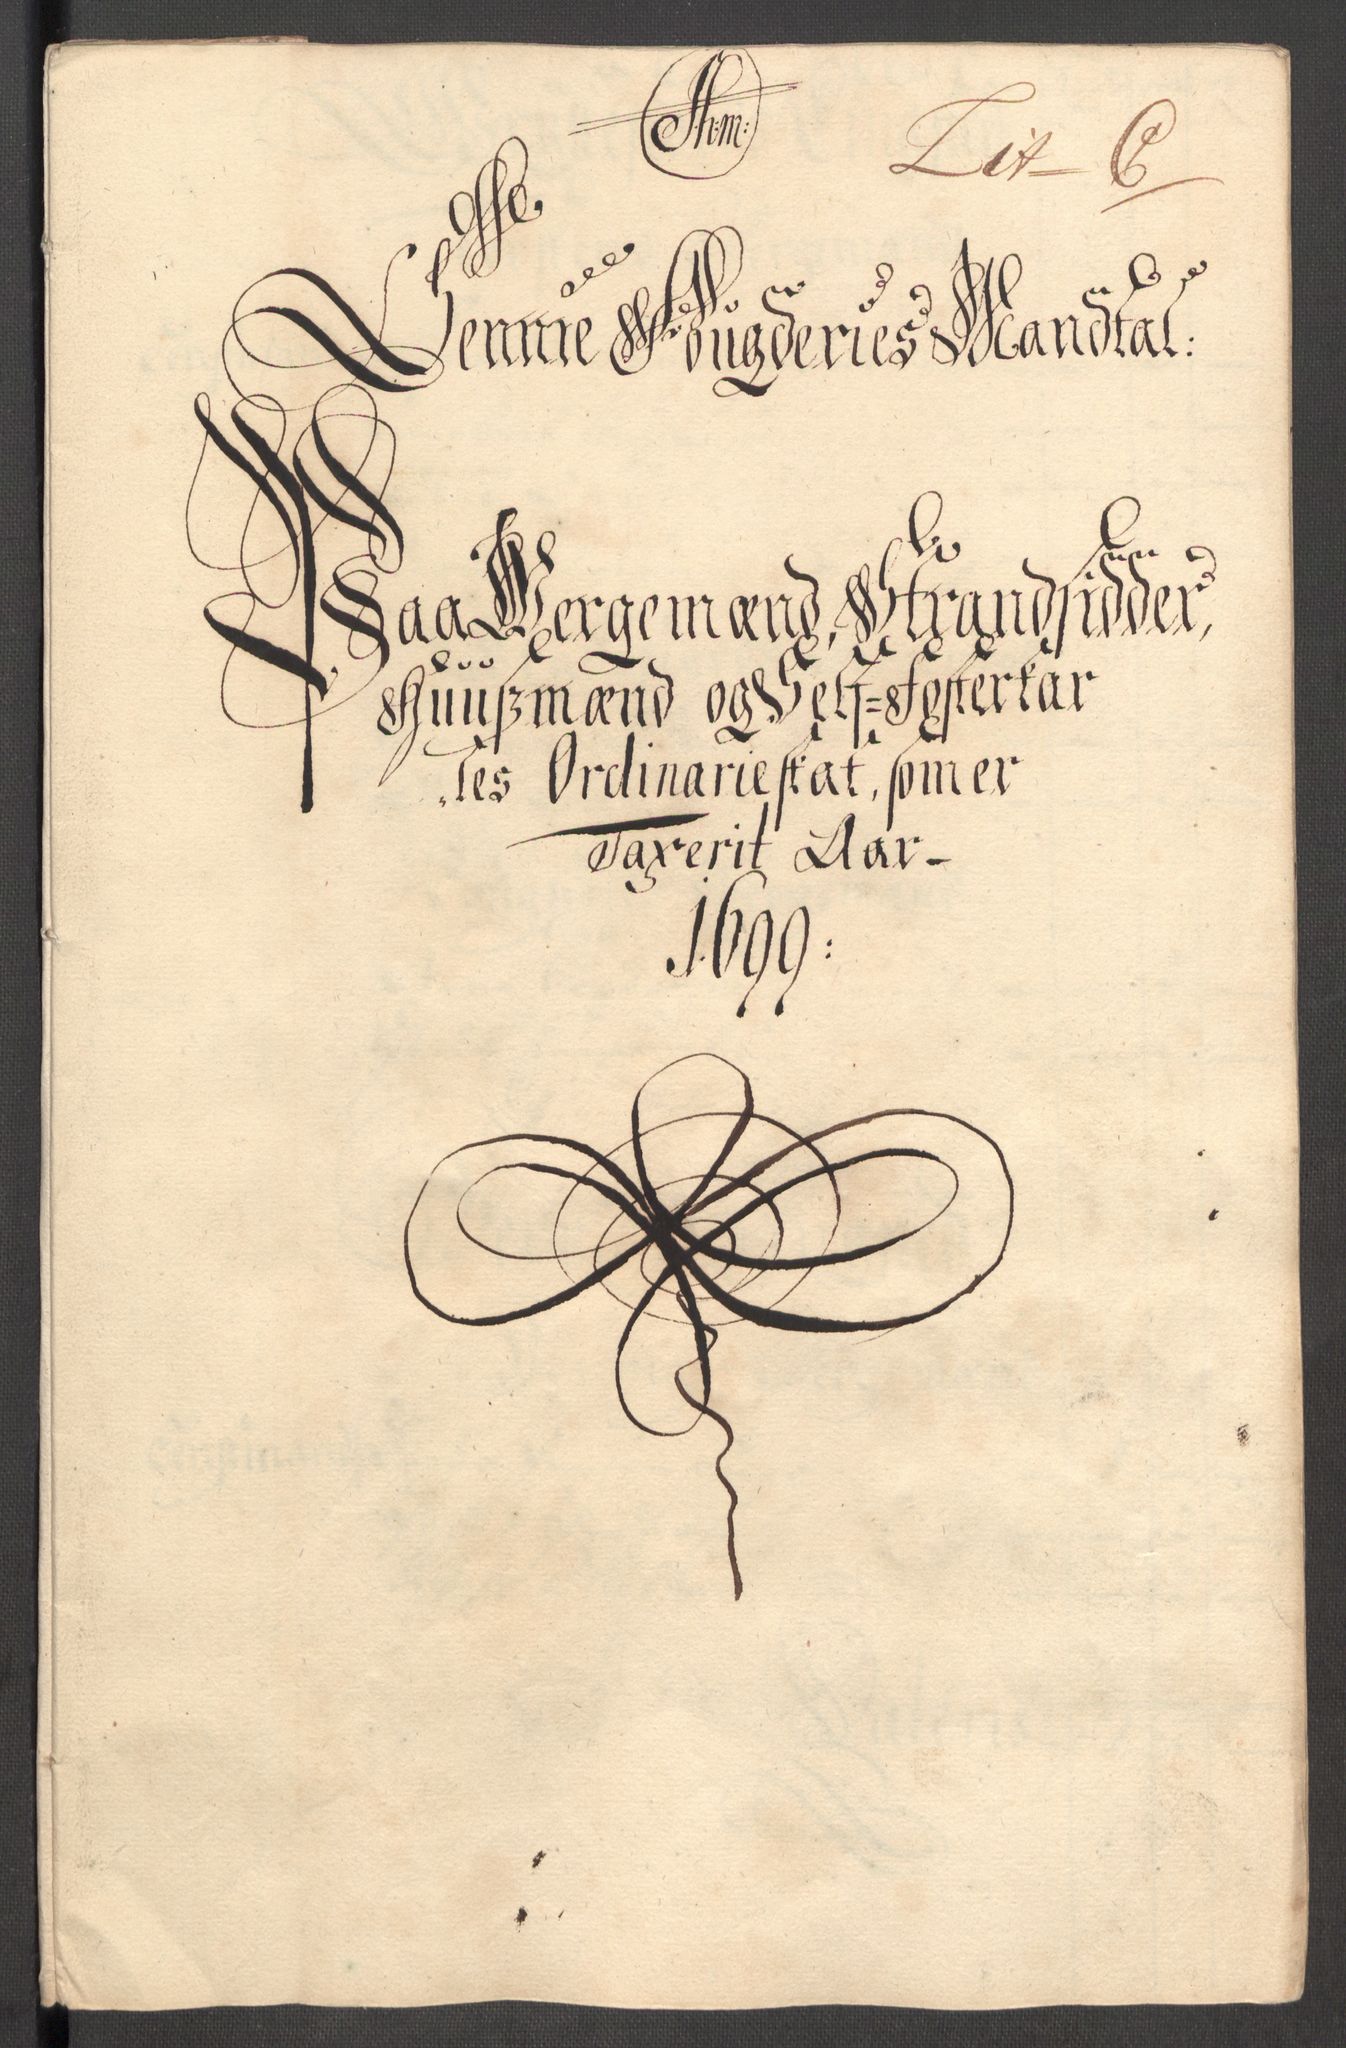 Lit C
Sennie Fougderies Mandtal:
Paa Vergemænd, Strandsidder,
Huusmænd og Self-fosterkar
les Ordinarieskat, som er
Taxerit Aar-
1699: